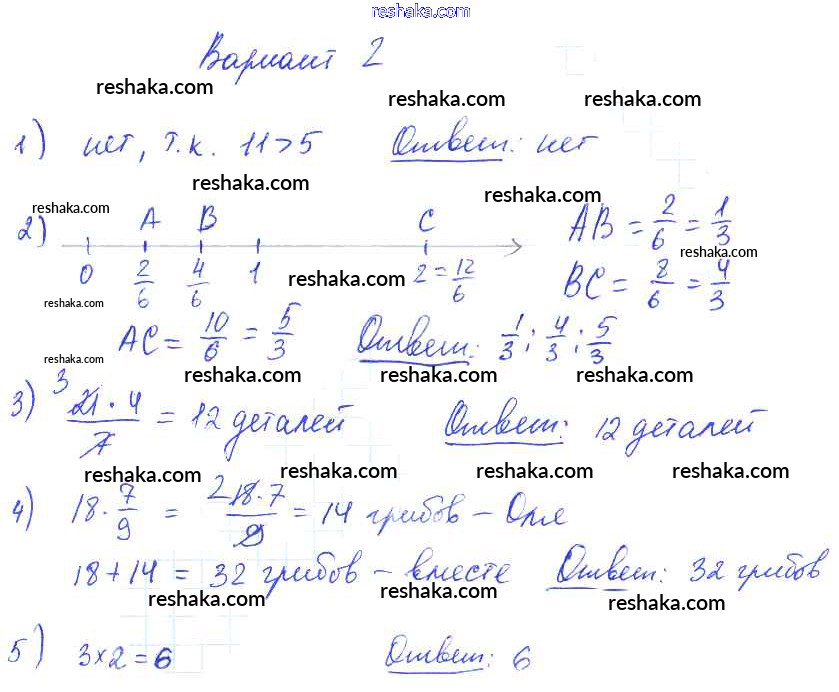 reshaka.com
Вариант 2
reshaka.com reshaka.com reshaka.com
1) нет, т.к. 11>5 Ответ: нет
reshaka.com reshaka.com
reshaka.com
2) A B C AB = 2/6 = 1/3
0 2/6 4/6 1 2 = 12/6 BC = 8/6 = 4/3
reshaka.com
reshaka.com
AC = 10/6 = 5/3 Ответ: 1/3; 4/3; 5/3
reshaka.com
reshaka.com reshaka.com reshaka.com
3) 3 21·4/7 = 12 деталей Ответ: 12 деталей
reshaka.com reshaka.com reshaka.com reshaka.com
4) 18·7/9 = 2 18·7/9 = 14 грибов – Оля
18+14 = 32 грибов – вместе Ответ: 32 грибов
reshaka.com reshaka.com reshaka.com
5) 3×2=6 Ответ: 6